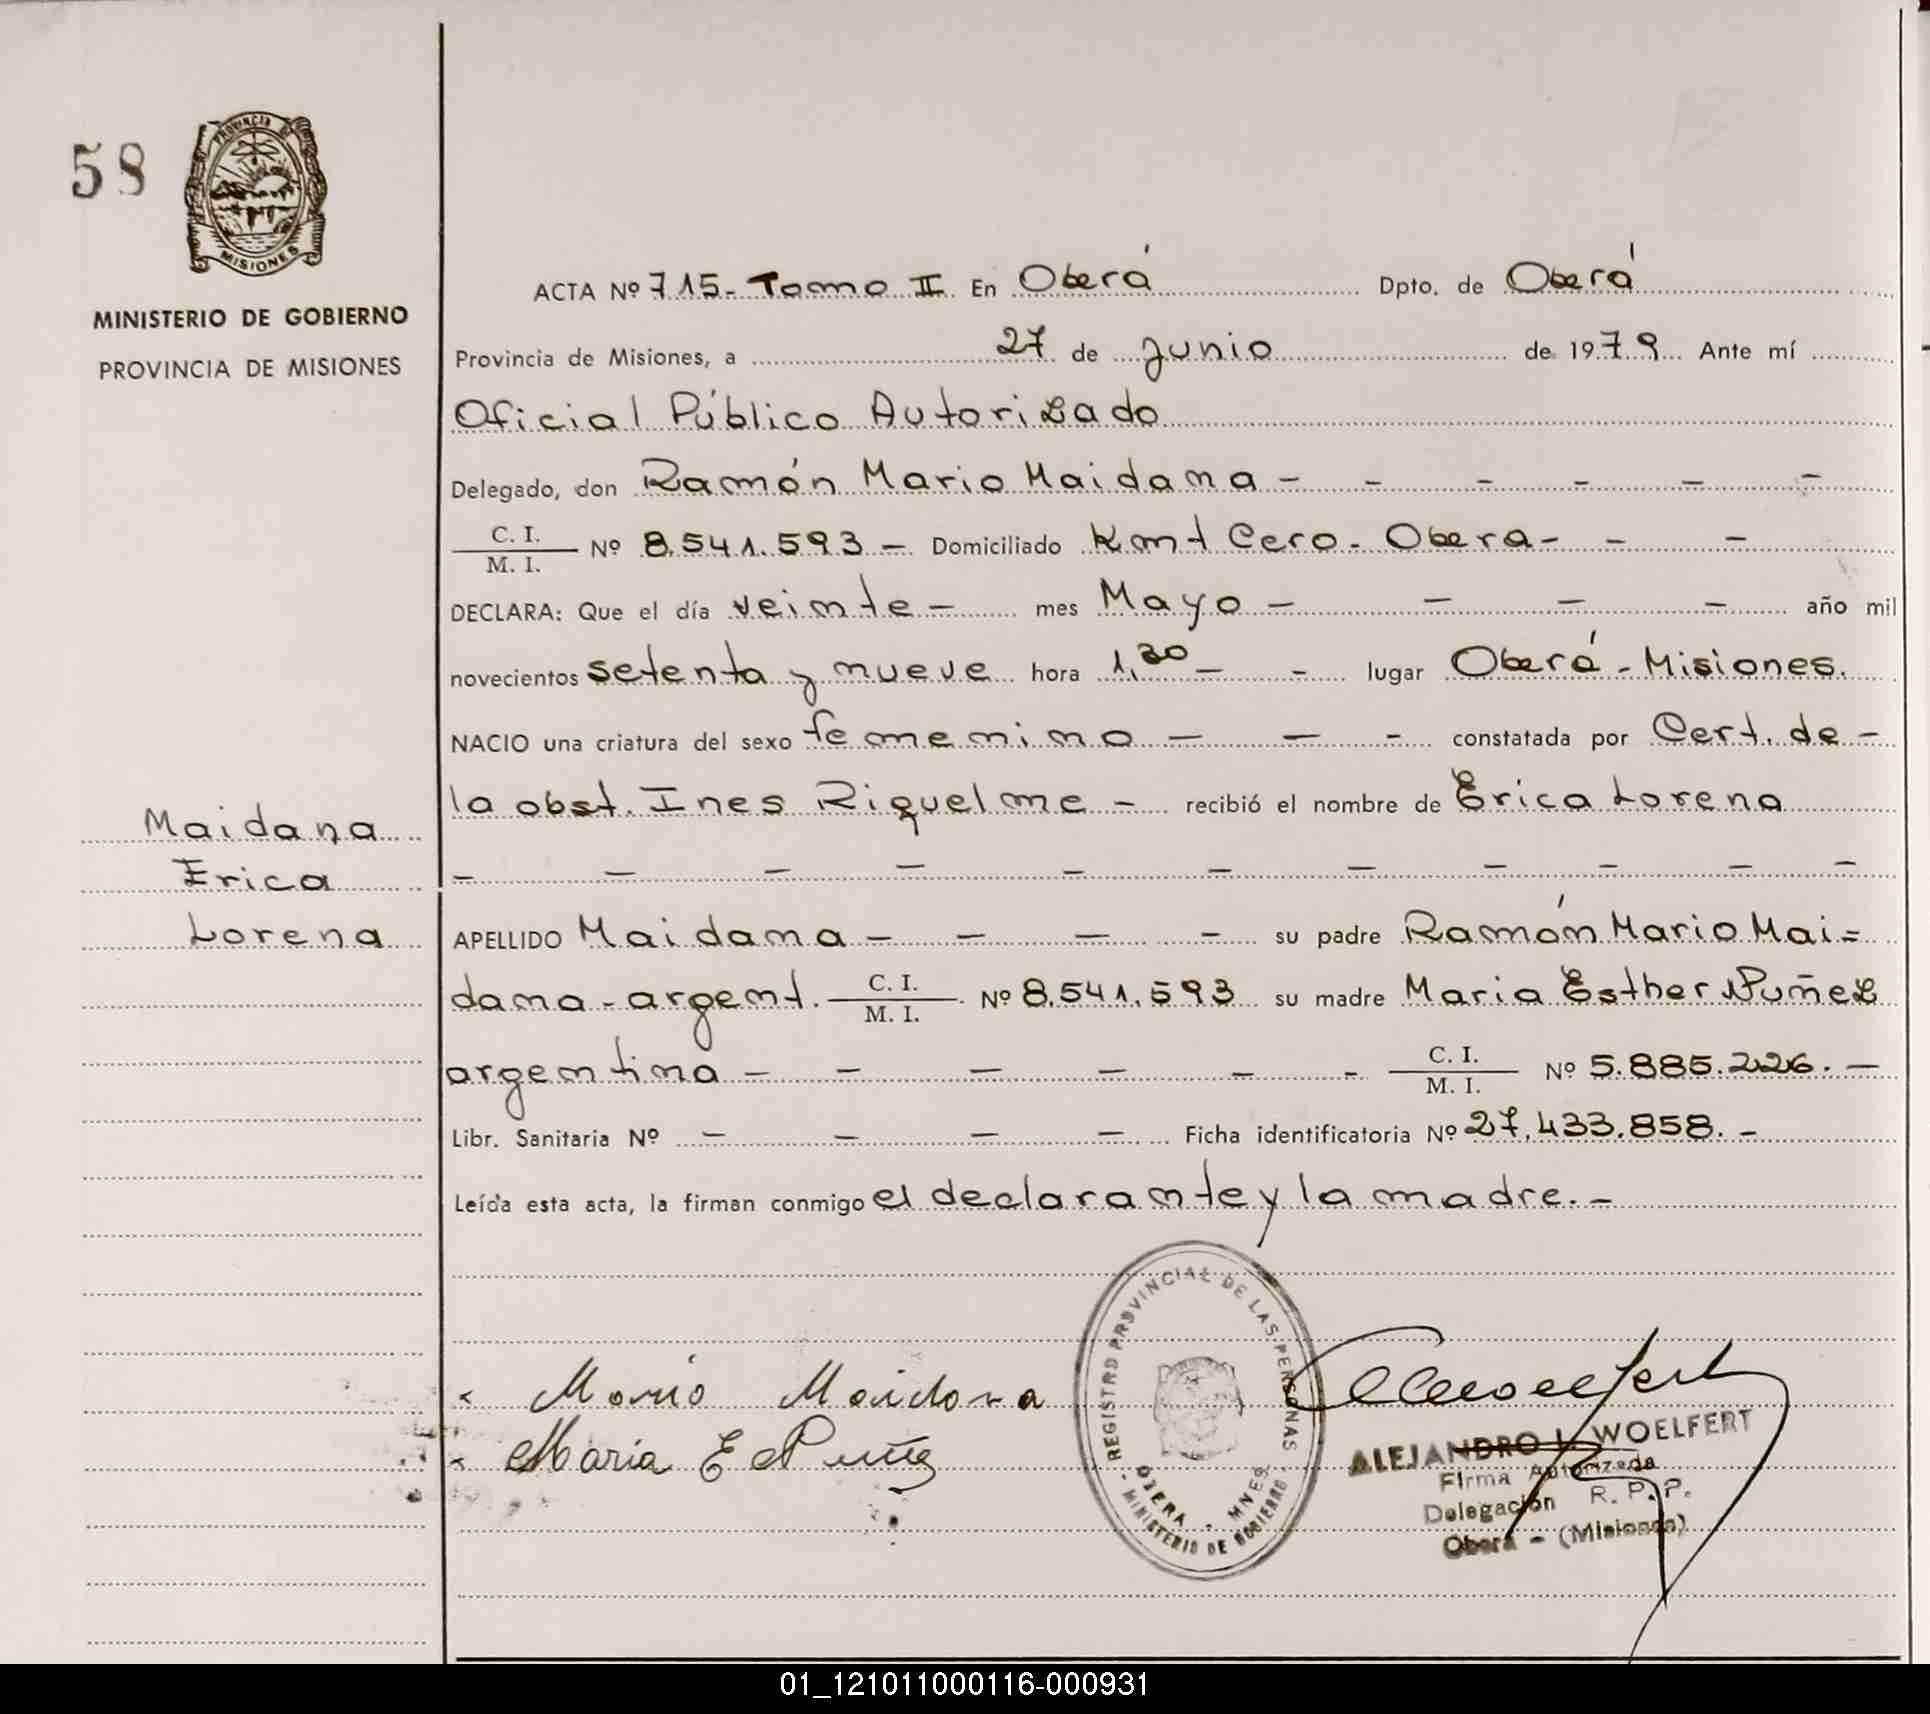 58
PROVINCIA DE
MISIONES
MINISTERIO DE GOBIERNO
PROVINCIA DE MISIONES
ACTA Nº 715- Tomo II En Oberá Dpto. de Oberá
Provincia de Misiones, a 27 de Junio de 1979 Ante mí
Oficial Público Autorizado
Delegado, don Ramón Mario Maidana - - - - - -
C. I.
M. I. Nº 8.541.593 - Domiciliado Kmt Cero - Obera - - -
DECLARA: Que el día veinte - mes Mayo - - - - año mil
novecientos setenta y nueve hora 1,30 - - lugar Oberá - Misiones.
NACIO una criatura del sexo femenino - - - constatada por Cert. de -
la obst. Ines Riquelme - recibió el nombre de Erica Lorena
- - - - - - - - - - - -
Maidana
Erica
Lorena
APELLIDO Maidana - - - - su padre Ramón Mario Mai=
dana - argent. C. I.
M. I. Nº 8.541.593 su madre Maria Esther Nuñez
argentina - - - - - - C. I.
M. I. Nº 5.885.226. -
Libr. Sanitaria Nº - - - - Ficha identificatoria Nº 27.433.858. -
Leída esta acta, la firman conmigo el declarante y la madre. -
Mario Maidana
Maria E Nuñez
REGISTRO PROVINCIAL DE LAS PERSONAS
OBERA - MNES
MINISTERIO DE GOBIERNO
ALEJANDRO L. WOELFERT
Firma Autorizada
Delegación R. P. P.
Oberá - (Misiones)
01_121011000116-000931